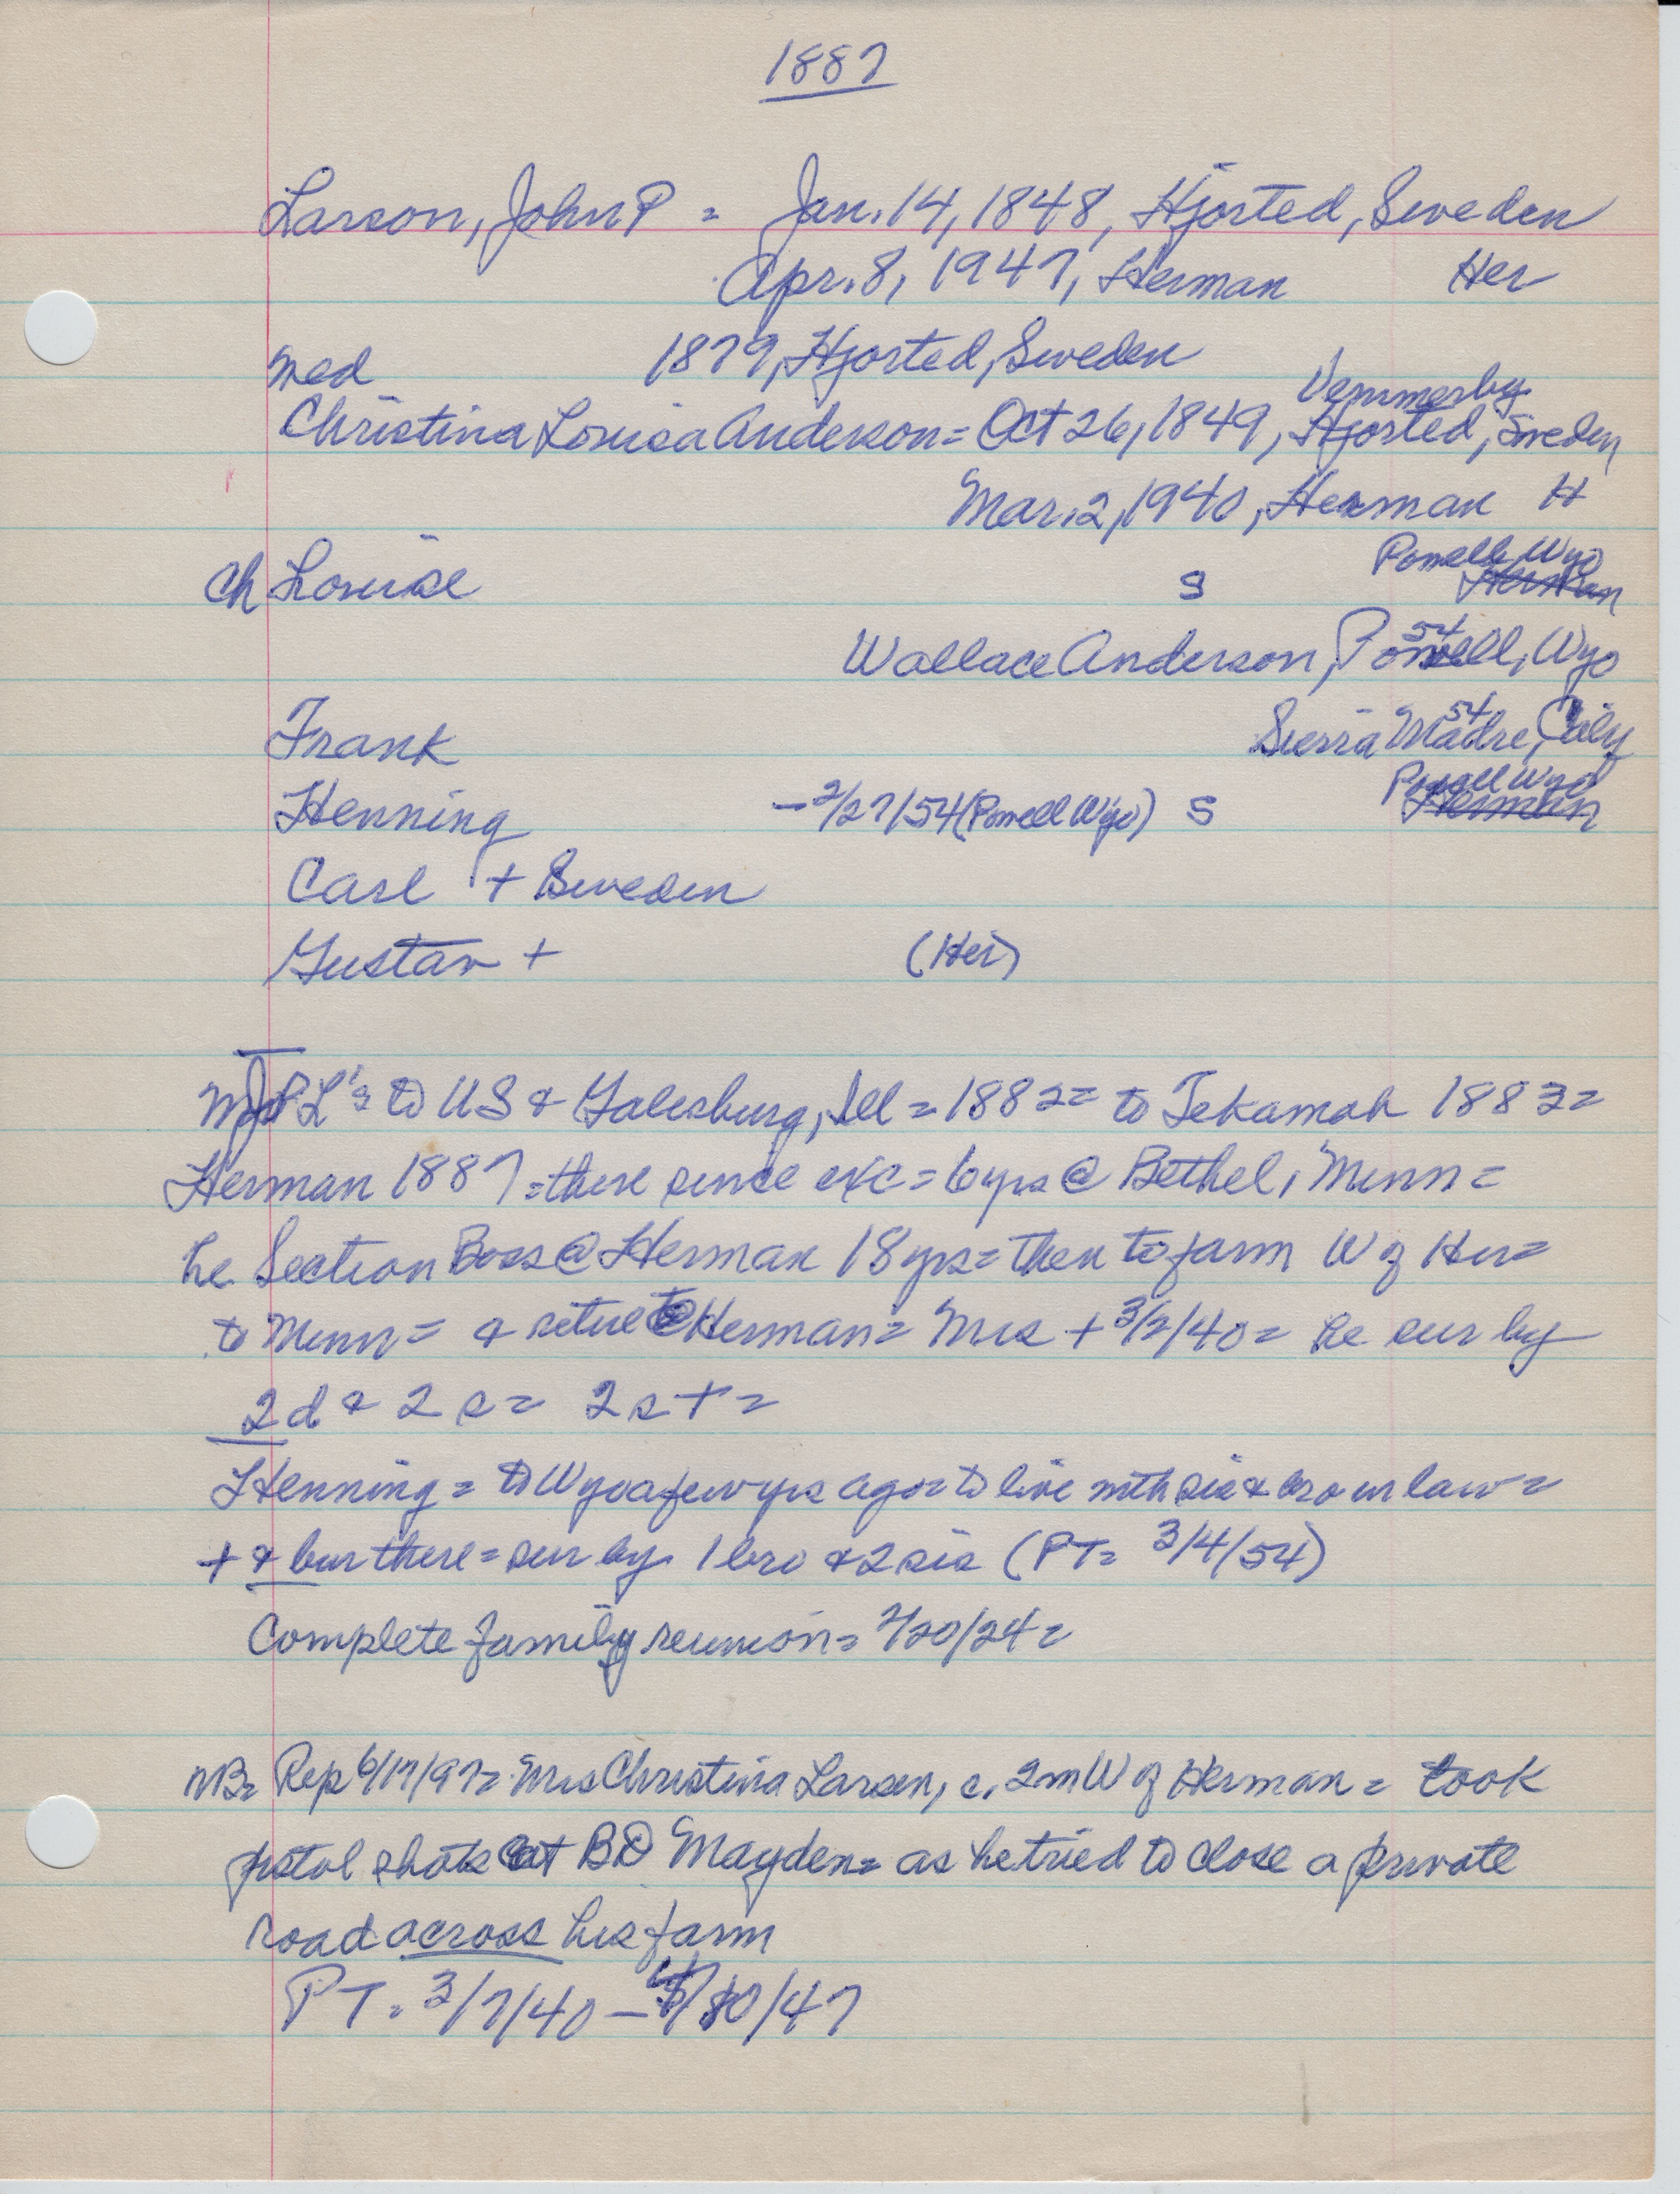 1887
Larson, John P = Jan. 14, 1848, Hjorted, Sweden
Apr. 8, 1947, Herman Her
med 1879, Hjorted, Sweden
Vemmerby
Christina Louisa Anderson = Oct 26, 1849, Hjorted, Sweden
Mar. 2, 1940, Herman H
Powell, Wyo
Ch Louise S Herman
54
Wallace Anderson, Powell, Wyo
54
Frank Sierra Madre, Calif
Powell Wyo
Henning - 2/27/54 (Powell Wyo) S Herman
Carl + Sweden
Gustav + (Her)
JPL's to US & Galesburg, Ill = 1882 = to Tekamah 1883 =
Herman 1887 = there since exc = 6 yrs @ Bethel, Minn =
he Section Boss @ Herman 18 yrs = then to farm W of Her =
to Minn = & retire to Herman = Mrs + 3/2/40 = he sur by
2 d & 2 s = 2 s + =
Henning = to Wyo a few yrs ago = to live with sis & bro in law =
+ & bur there = sur by 1 bro & 2 sis (PT = 3/4/54)
Complete family reunion = 7/20/24 =
NB = Rep 6/17/97 = Mrs Christina Larsen, c. 2 m W of Herman = took
pistol shots at BD Mayden = as he tried to close a private
road across his farm
PT = 3/7/40 - /10/47